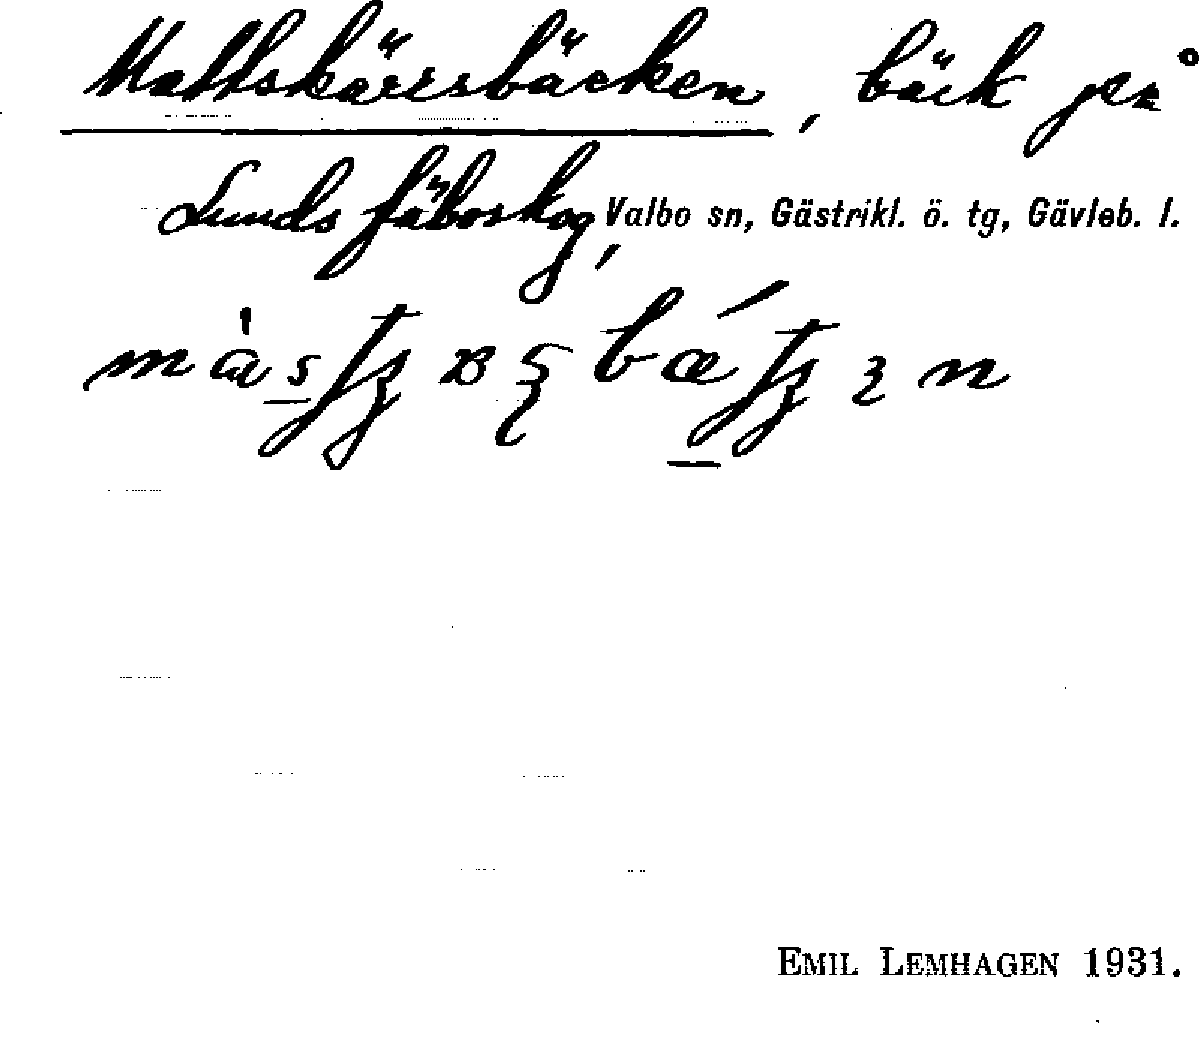 Mattskärrsbäcken, bäck på
Lunds fäboskog, Valbo sn, Gästrikl. ö. tg, Gävleb. l.
EMIL LEMHAGEN 1931.